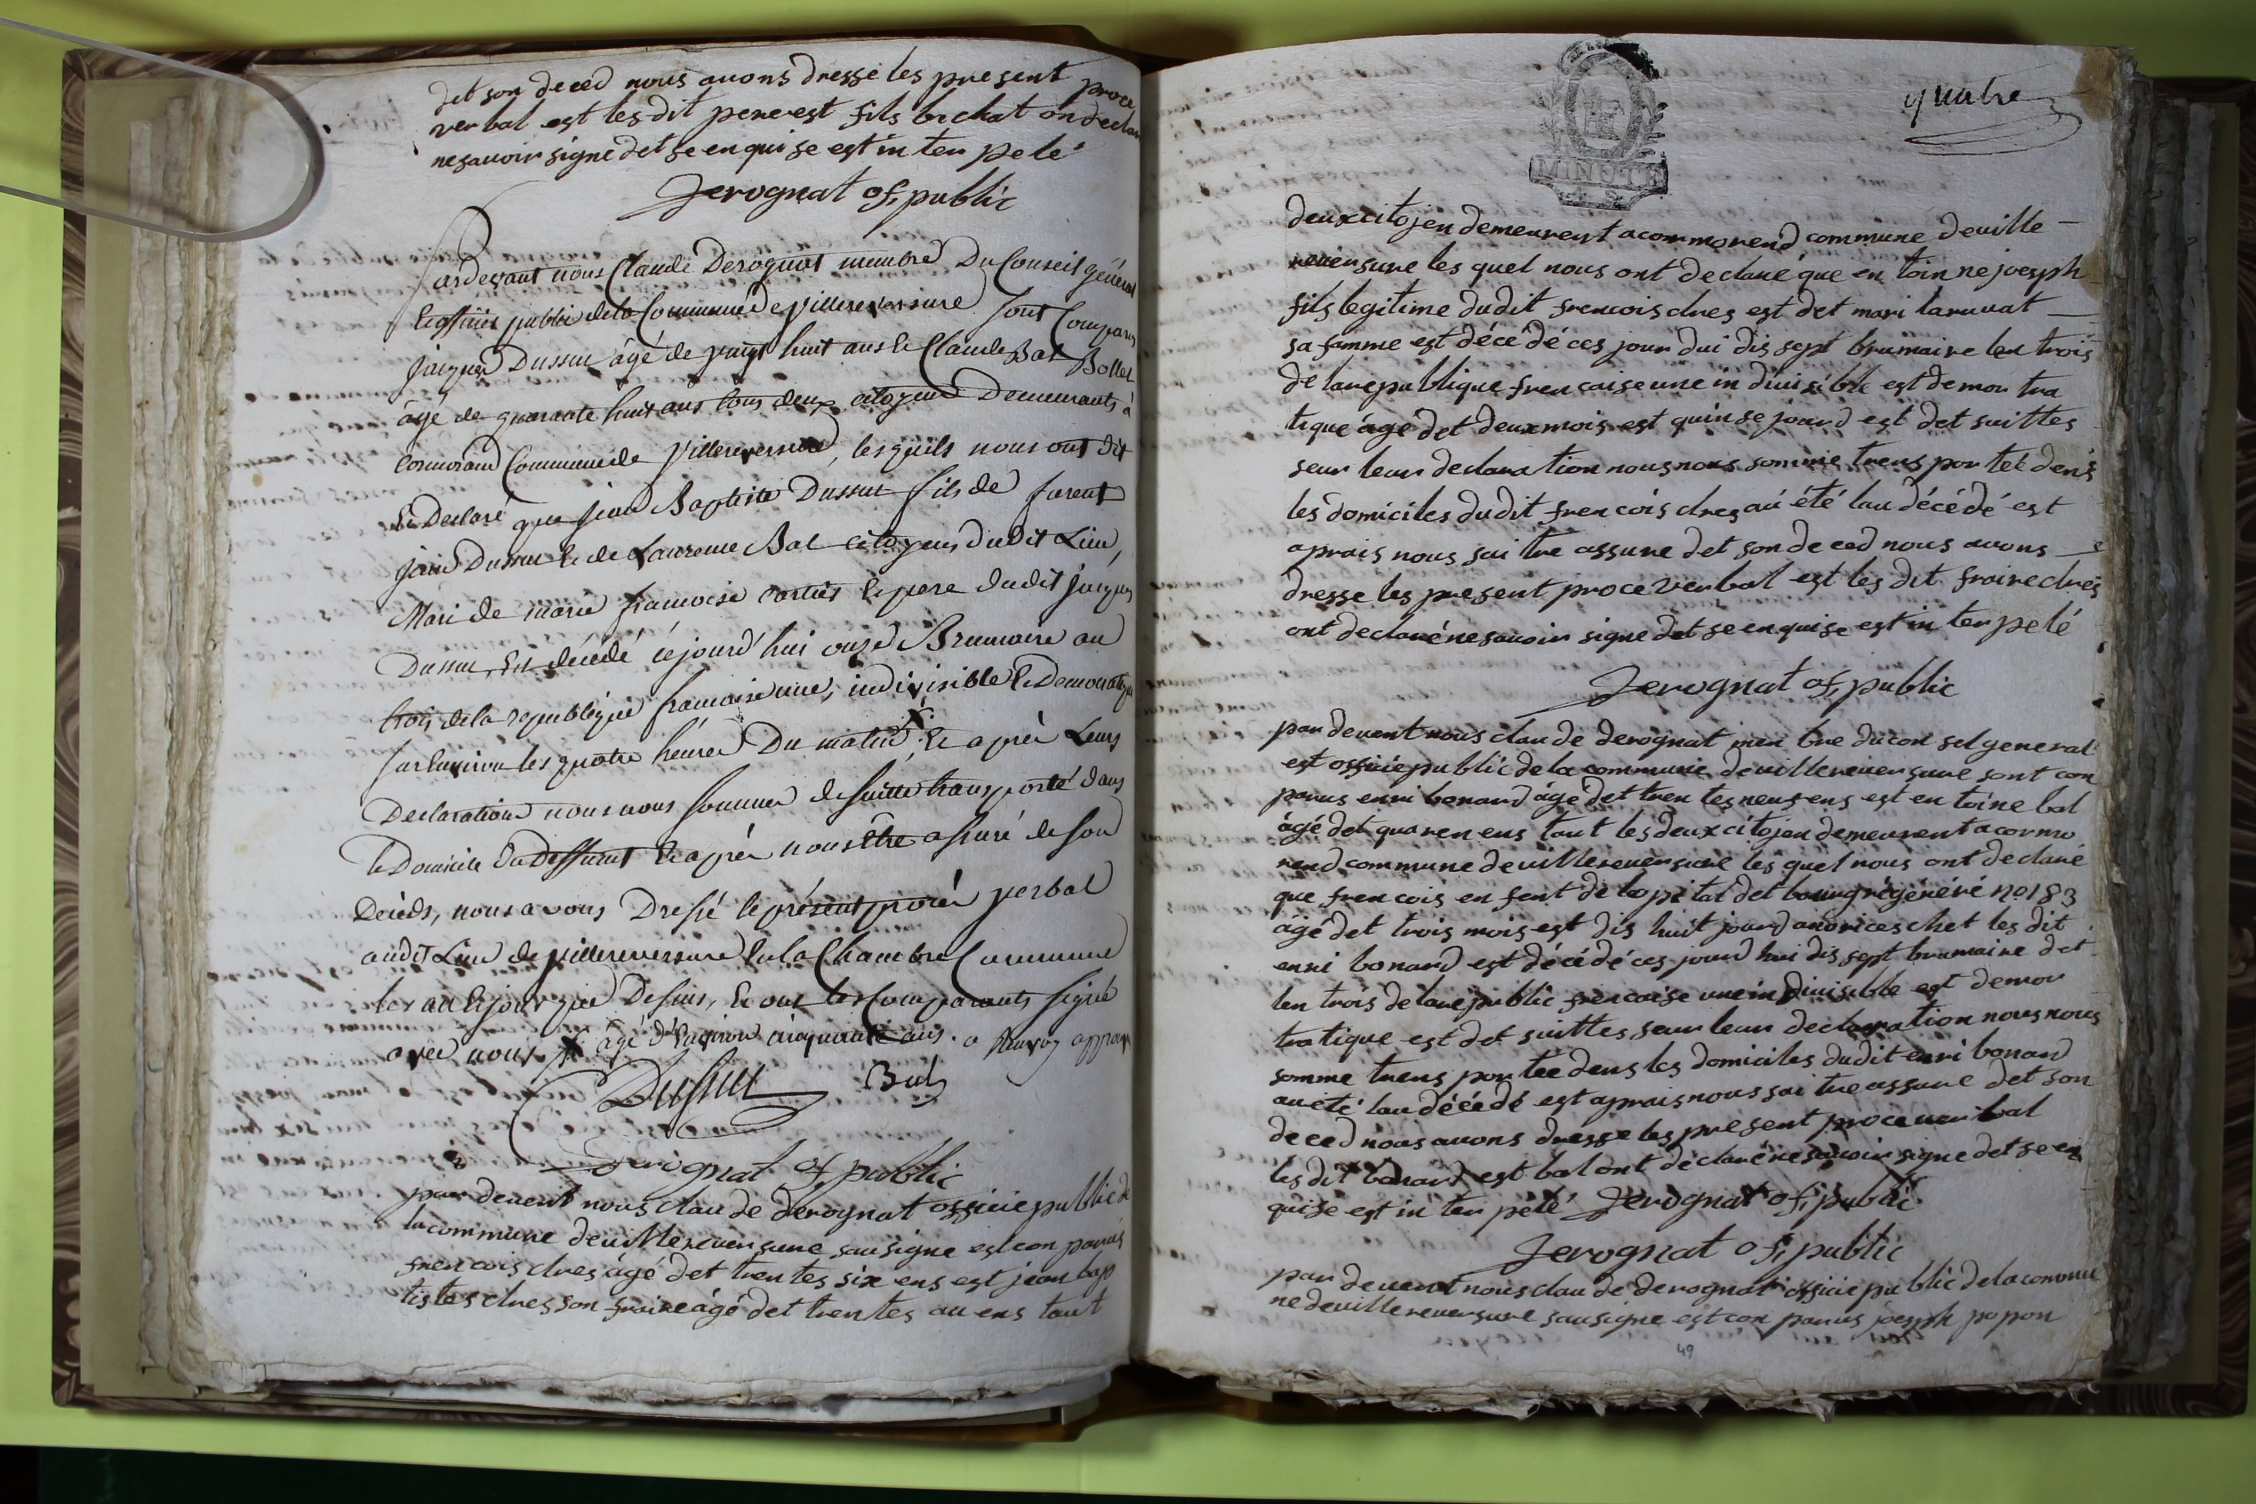 det son deced nous auons dresse les present proce
verbal est les dit pere est fils bichat on declar
ne sauoir signe det se en qui se est in ter pelé
Derognat of, public
Pardevant nous Claude Derognat membre Du Conseil général
Et officier public de la Commune de Villereversure Sont Comparus
jacques Dussut âgé de vingt huit ans Et Claude Bal Bollet
âgé de quarante huit ans tous deux citoyens Demeurants à
Cormorand Commune de Villereversure, lesquels nous ont dit
Et Declaré que jean Baptiste Dussut fils de furent
jean Dussut Et de Laurence Bal citoyens dudit Lieu,
Mari de marie françoise Et pere dudit jacques
Dussut, Est décédé cejourd'hui onze Brumaire an
trois de la republique francoise une, indivisible Et Democratique
sur Environ les quatre heures Du matin X. Et après Leurs
Declaration nous nous sommes de suitte transporté dans
le Domicile Du Deffunt Et après nous être assuré de son
Décèds, nous avons Dressé le présent procès verbal
audit Lieu de Villereversure En la Chambre Commune
les an Et jour que Dessus, Et ont les Comparants signé
avec nous X âgé d'Environ cinquante ans. a
Dussut Bal
Derognat of, public
par deuent nous clau de derognat officie public de
la commune deuillereuersure sausigne est con parus
frencois dres âgé det trentes six ens est jean bap
tistes dres son fraire âgé det trentes au ens taut
quatre
MINUTE
deux citojen demeurent a cormorend commune deuille
reuersure les quel nous ont declaré que en toin ne joesph
fils legitime dudit frencois dres est det mari laruat
sa famme est décédé ces jour dui dis sept brumaire len trois
de larepublique frencaise une in diuisible est demou tra
tique âgé det deux mois est quinse jourd est det suittes
seur leur declaration nous nous somme trens por teé dens
les domiciles dudit frencois dres au été lau décédé est
aprais nous sai tre assure det son de ced nous avons
dresse les present proce verbal est les dit fraire dres
ont declaré ne sauoir signe det se en qui se est in ter pelé
Derognat of, public
par deuent nous clau de derognat men bre du con sel general
est officie public de la commune deuillereuersure sont con
parus enri bonard âgé det tren tes neuf ens est en toine bal
âgé det quaren ens taut les deux citojen demeurent a cormo
rend commune deuillereuersure les quel nous ont declaré
que frencois en fent de lopetal det bourg régénéré no 183
âgé det trois mois est dis huit jourd anorices chet les dit
enri bonard est décédé ces jourd hui dis sept brumaire det
len trois de larepublic frencaise une in diuisible est demou
tratique est det suittes seur leur declaration nous nous
somme trens por tee dens les domiciles dudit enri bonard
au eté lau décédé est aprais nous sai tre assure det son
de ced nous auons dresse les present proce uer bal
les dit bonard est bal ont declaré ne sauoir signe det se en
qui se est in ter pelé Derognat of, public
Derognat of, public
par deuent nous clau de derognat officie public de la commu
ne deuillereuersure sausigne est con parus joesph popon
49